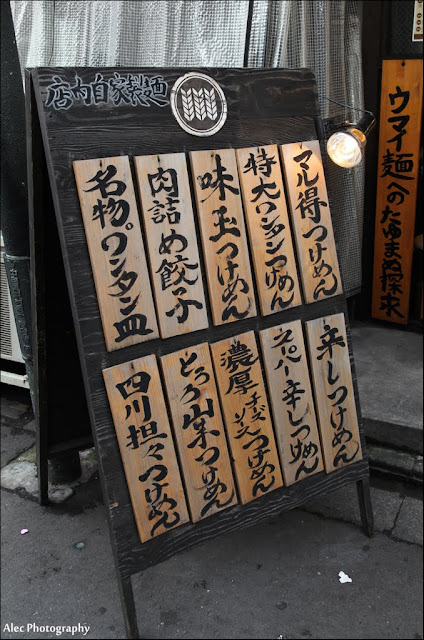 店内自家製麺
マル得つけめん
特大ワンタンつけめん
味玉つけめん
肉詰め餃子
名物ワンタン皿
辛しつけめん
スーパー辛しつけめん
濃厚つけめん
とろろ山菜つけめん
四川担々つけめん
ウマイ麺へのたゆまぬ探求
Alec Photography